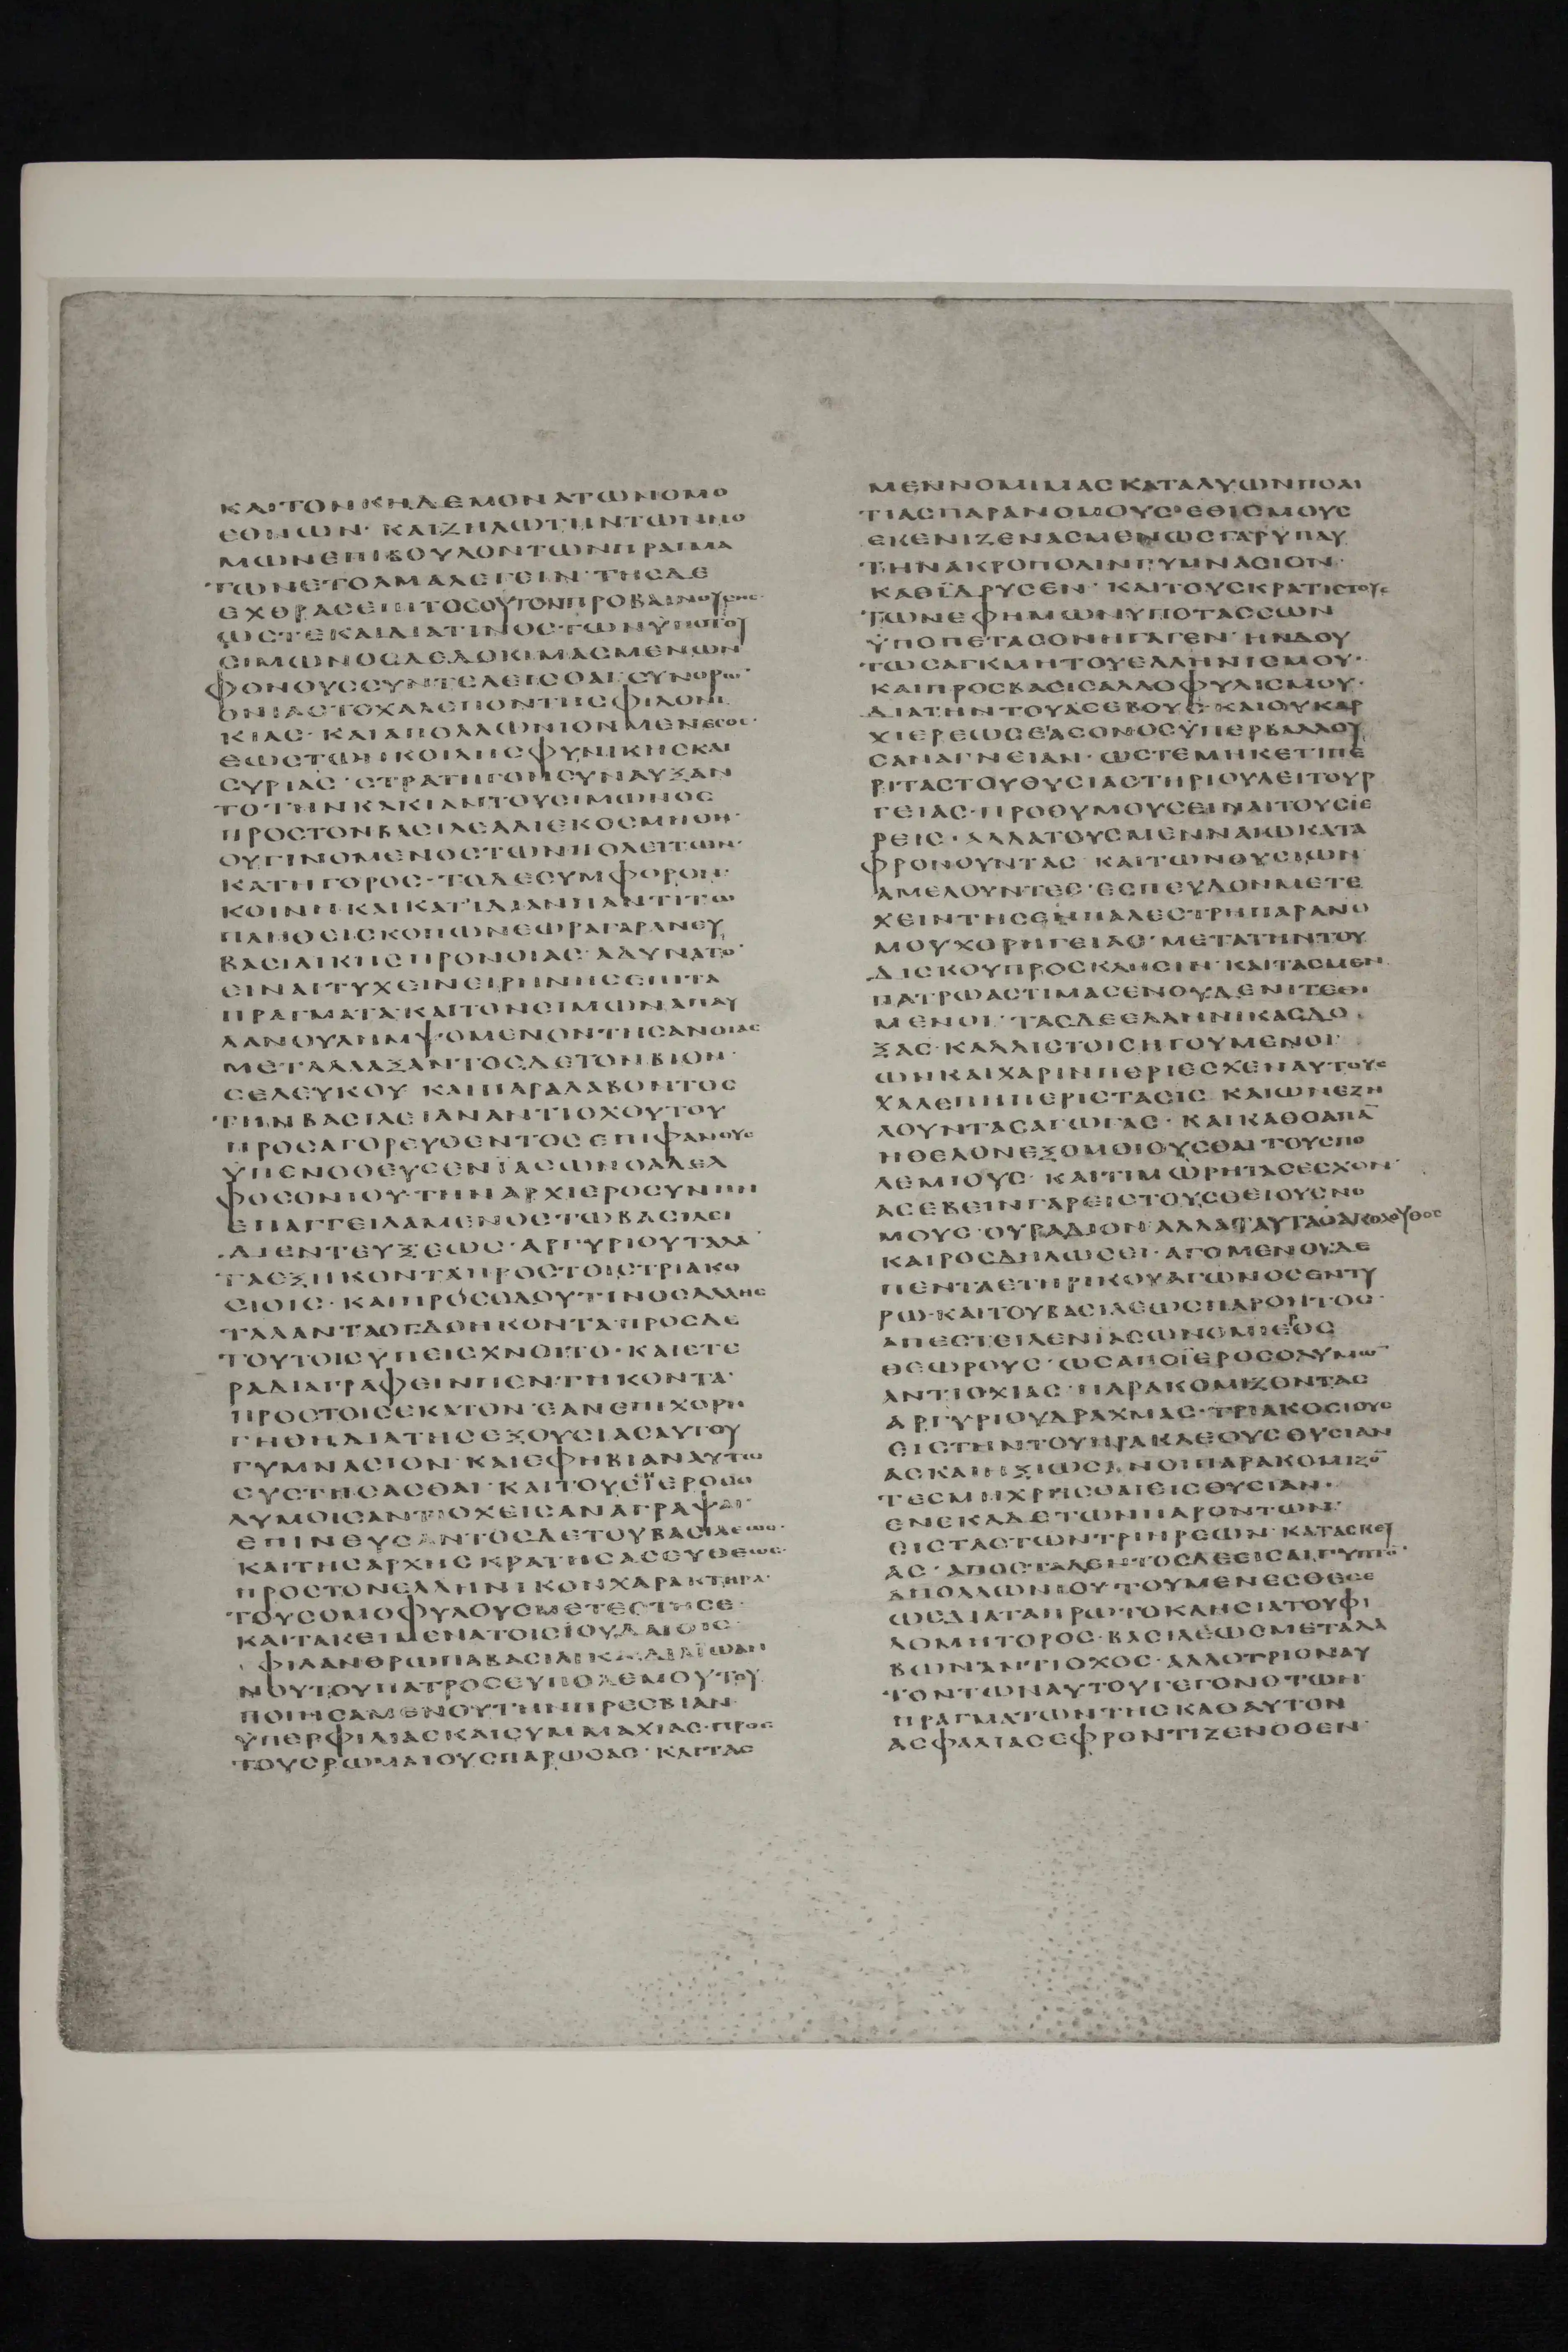 ΚΑΙΤΟΝΚΗΔΕΜΟΝΑΤΩΝΟΜΟ
ΕΘΝΩΝ· ΚΑΙΖΗΛΩΤΗΝΤΩΝΝΟ
ΜΩΝΕΠΙΒΟΥΛΟΝΤΩΝΠΡΑΓΜΑ
ΤΩΝΕΤΟΛΜΑΛΕΓΕΙΝ· ΤΗΣΔΕ
ΕΧΘΡΑΣΕΠΙΤΟΣΟΥΤΟΝΠΡΟΒΑΙΝΟΥΣΗΣ·
ΩΣΤΕΚΑΙΔΙΑΤΙΝΟΣΤΩΝΫΠΟΤΟΥ
ΣΙΜΩΝΟΣΔΕΔΟΚΙΜΑΣΜΕΝΩΝ
ΦΟΝΟΥΣΣΥΝΤΕΛΕΙΣΘΑΙ· ΣΥΝΟΡΩ̄·
ΟΝΙΑΣΤΟΧΑΛΕΠΟΝΤΗΣΦΙΛΟΝΙ
ΚΙΑΣ· ΚΑΙΑΠΟΛΛΩΝΙΟΝΜΕΝΕΣΘΣ·
ΕΩΣΤΩΝΚΟΙΛΗΣΦΥΝΙΚΗΣΚΑΙ
ΣΥΡΙΑΣ· ΣΤΡΑΤΗΓΟΝΣΥΝΑΥΞΑΝ
ΤΟΤΗΝΚΑΚΙΑΝΤΟΥΣΙΜΩΝΟΣ
ΠΡΟΣΤΟΝΒΑΣΙΛΕΑΔΙΕΚΟΣΜΗΘΗ·
ΟΥΓΙΝΟΜΕΝΟΣΤΩΝΠΟΛΕΙΤΩΝ·
ΚΑΤΗΓΟΡΟΣ· ΤΟΔΕΣΥΜΦΟΡΟΝ·
ΚΟΙΝΗ·ΚΑΙΚΑΤΙΔΙΑΝΠΑΝΤΙΤΩ
ΠΛΗΘΕΙΣΚΟΠΩΝΕΩΡΑΓΑΡΑΝΕΥ
ΒΑΣΙΛΙΚΗΣΠΡΟΝΟΙΑΣ· ΑΔΥΝΑΤΟ̄·
ΕΙΝΑΙΤΥΧΕΙΝΕΙΡΗΝΗΣΕΠΙΤΑ
ΠΡΑΓΜΑΤΑ·ΚΑΙΤΟΝΣΙΜΩΝΑΠΑΥ
ΛΑΝΟΥΛΗΜΨΟΜΕΝΟΝΤΗΣΑΝΟΙΑΣ
ΜΕΤΑΛΛΑΞΑΝΤΟΣΔΕΤΟΝΒΙΟΝ·
ΣΕΛΕΥΚΟΥ ΚΑΙΠΑΡΑΛΑΒΟΝΤΟΣ
ΤΗΝΒΑΣΙΛΕΙΑΝΑΝΤΙΟΧΟΥΤΟΥ
ΠΡΟΣΑΓΟΡΕΥΘΕΝΤΟΣΕΠΙΦΑΝΟΥΣ
ΫΠΕΝΟΘΕΥΣΕΝΪΑΣΩΝΟΑΔΕΛ
ΦΟΣΟΝΙΟΥ·ΤΗΝΑΡΧΙΕΡΟΣΥΝΗΝ
ΕΠΑΓΓΕΙΛΑΜΕΝΟΣΤΩΒΑΣΙΛΕΙ
ΔΙΕΝΤΕΥΞΕΩΣ·ΑΡΓΥΡΙΟΥΤΑΛᾹ
ΤΑΕΞΗΚΟΝΤΑΠΡΟΣΤΟΙΣΤΡΙΑΚΟ
ΣΙΟΙΣ· ΚΑΙΠΡΟΣΟΔΟΥΤΙΝΟΣΑΛΛΗΣ
ΤΑΛΑΝΤΑΟΓΔΟΗΚΟΝΤΑ·ΠΡΟΣΔΕ
ΤΟΥΤΟΙΣΫΠΕΙΣΧΝΟΙΤΟ· ΚΑΙΕΤΕ
ΡΑΔΙΑΓΡΑΦΕΙΝΠΕΝΤΗΚΟΝΤΑ·
ΠΡΟΣΤΟΙΣΕΚΑΤΟΝ·ΕΑΝΕΠΙΧΟΡΗ
ΓΗΘΗΔΙΑΤΗΣΕΞΟΥΣΙΑΣΑΥΤΟΥ
ΓΥΜΝΑΣΙΟΝ·ΚΑΙΕΦΗΒΙΑΝΑΥΤΩ
ΣΥΣΤΗΣΑΣΘΑΙ·ΚΑΙΤΟΥΣΪΕΡΟΣΟ
ΛΥΜΟΙΣΑΝΤΙΟΧΕΙΣΑΝΑΓΡΑΨΑΙ·
ΕΠΙΝΕΥΣΑΝΤΟΣΔΕΤΟΥΒΑΣΙΛΕΩΣ·
ΚΑΙΤΗΣΑΡΧΗΣΚΡΑΤΗΣΑΣΕΥΘΕΩΣ·
ΠΡΟΣΤΟΝΕΛΛΗΝΙΚΟΝΧΑΡΑΚΤΗΡΑ·
ΤΟΥΣΟΜΟΦΥΛΟΥΣΜΕΤΕΣΤΗΣΕ·
ΚΑΙΤΑΚΕΙΜΕΝΑΤΟΙΣΪΟΥΔΑΙΟΙΣ·
ΦΙΛΑΝΘΡΩΠΑΒΑΣΙΛΙΚΑΔΙΑΪΩΑΝ
ΝΟΥΤΟΥΠΑΤΡΟΣΕΥΠΟΛΕΜΟΥΤΟΥ
ΠΟΙΗΣΑΜΕΝΟΥΤΗΝΠΡΕΣΒΙΑΝ·
ΫΠΕΡΦΙΛΙΑΣΚΑΙΣΥΜΜΑΧΙΑΣ·ΠΡΟΣ
ΤΟΥΣΡΩΜΑΙΟΥΣΠΑΡΩΘΑΣ· ΚΑΙΤΑΣ
ΜΕΝΝΟΜΙΜΑΣΚΑΤΑΛΥΩΝΠΟΛΙ
ΤΙΑΣΠΑΡΑΝΟΜΟΥΣ·ΕΘΙΣΜΟΥΣ
ΕΚΕΝΙΖΕΝΑΣΜΕΝΩΣΓΑΡΥΠΑΥ
ΤΗΝΑΚΡΟΠΟΛΙΝΓΥΜΝΑΣΙΟΝ·
ΚΑΘΪΔΡΥΣΕΝ· ΚΑΙΤΟΥΣΚΡΑΤΙΣΤΟΥΣ
ΤΩΝΕΦΗΜΩΝΥΠΟΤΑΣΣΩΝ
ΫΠΟΠΕΤΑΣΟΝΗΓΑΓΕΝ· ΗΝΔΟΥ
ΤΩΣΑΓΚΜΗΤΟΥΕΛΛΗΝΙΣΜΟΥ·
ΚΑΙΠΡΟΣΒΑΣΙΣΑΛΛΟΦΥΛΙΣΜΟΥ·
ΔΙΑΤΗΝΤΟΥΑΣΕΒΟΥΣ·ΚΑΙΟΥΚΑΡ
ΧΙΕΡΕΩΣΕΑΣΟΝΟΣΫΠΕΡΒΑΛΛΟΥ
ΣΑΝΑΓΝΕΙΑΝ· ΩΣΤΕΜΗΚΕΤΙΠΕ
ΡΙΤΑΣΤΟΥΘΥΣΙΑΣΤΗΡΙΟΥΛΕΙΤΟΥΡ
ΓΕΙΑΣ·ΠΡΟΘΥΜΟΥΣΕΙΝΑΙΤΟΥΣΙΕ
ΡΕΙΣ· ΑΛΛΑΤΟΥΣΜΕΝΝΑΚΩΚΑΤΑ
ΦΡΟΝΟΥΝΤΑΣ ΚΑΙΤΩΝΘΥΣΙΩΝ
ΑΜΕΛΟΥΝΤΕΣ·ΕΣΠΕΥΔΟΝΜΕΤΕ
ΧΕΙΝΤΗΣΕΝΠΑΛΕΣΤΡΗΠΑΡΑΝΟ
ΜΟΥΧΟΡΗΓΕΙΑΣ·ΜΕΤΑΤΗΝΤΟΥ
ΔΙΣΚΟΥΠΡΟΣΚΛΗΣΙΝ· ΚΑΙΤΑΣΜΕΝ
ΠΑΤΡΩΑΣΤΙΜΑΣΕΝΟΥΔΕΝΙΤΕΘΙ
ΜΕΝΟΙ· ΤΑΣΔΕΕΛΛΗΝΙΚΑΣΔΟ
ΞΑΣ·ΚΑΛΛΙΣΤΟΙΣΗΓΟΥΜΕΝΟΙ·
ΩΝΚΑΙΧΑΡΙΝΠΕΡΙΕΣΧΕΝΑΥΤΟΥΣ
ΧΑΛΕΠΗΠΕΡΙΣΤΑΣΙΣ ΚΑΙΩΝΕΖΗ
ΛΟΥΝΤΑΣΑΓΩΓΑΣ· ΚΑΙΚΑΘΟΑΠᾹ
ΗΘΕΛΟΝΕΞΟΜΟΙΟΥΣΘΑΙ·ΤΟΥΣΠΟ
ΛΕΜΙΟΥΣ· ΚΑΙΤΙΜΩΡΗΤΑΣΕΣΧΟΝ·
ΑΣΕΒΕΙΝΓΑΡΕΙΣΤΟΥΣΘΕΙΟΥΣΝΟ
ΜΟΥΣ·ΟΥΡΑΔΙΟΝΑΛΛΑΤΑΥΤΑΟΑΚΟΛΟΥΘΟΣ
ΚΑΙΡΟΣΔΗΛΩΣΕΙ· ΑΓΟΜΕΝΟΥΔΕ
ΠΕΝΤΑΕΤΗΡΙΚΟΥΑΓΩΝΟΣΕΝΤΥ
ΡΩ·ΚΑΙΤΟΥΒΑΣΙΛΕΩΣΠΑΡΟΝΤΟΣ·
ΑΠΕΣΤΕΙΛΕΝΪΑΣΩΝΟΜΙΕΡΟΣ
ΘΕΩΡΟΥΣ· ΩΣΑΠΟΪΕΡΟΣΟΛΥΜΩ̄
ΑΝΤΙΟΧΙΑΣ·ΠΑΡΑΚΟΜΙΖΟΝΤΑΣ
ΑΡΓΥΡΙΟΥΔΡΑΧΜΑΣ·ΤΡΙΑΚΟΣΙΟΥΣ
ΕΙΣΤΗΝΤΟΥΗΡΑΚΛΕΟΥΣΘΥΣΙΑΝ
ΑΣΚΑΙΗΞΙΩΣΑΝΟΙΠΑΡΑΚΟΜΙΖΟ̄
ΤΕΣΜΗΧΡΗΣΘΑΙΕΙΣΘΥΣΙΑΝ·
ΕΝΕΚΑΔΕΤΩΝΠΑΡΟΝΤΩΝ·
ΕΙΣΤΑΣΤΩΝΤΡΙΗΡΕΩΝ·ΚΑΤΑΣΚΕΥ
ΑΣ· ΑΠΟΣΤΑΛΕΝΤΟΣΔΕΕΙΣΑΙΓΥΠΤΟ̄·
ΑΠΟΛΛΩΝΙΟΥ·ΤΟΥΜΕΝΕΣΘΕΣΕ
ΩΣΔΙΑΤΑΠΡΩΤΟΚΛΗΣΙΑΤΟΥΦΙ
ΛΟΜΗΤΟΡΟΣ·ΒΑΣΙΛΕΩΣΜΕΤΑΛΑ
ΒΩΝΑΝΤΙΟΧΟΣ·ΑΛΛΟΤΡΙΟΝΑΥ
ΤΟΝΤΩΝΑΥΤΟΥΓΕΓΟΝΟΤΩΝ
ΠΡΑΓΜΑΤΩΝΤΗΣΚΑΘΑΥΤΟΝ
ΑΣΦΑΛΙΑΣΕΦΡΟΝΤΙΖΕΝΟΘΕΝ·